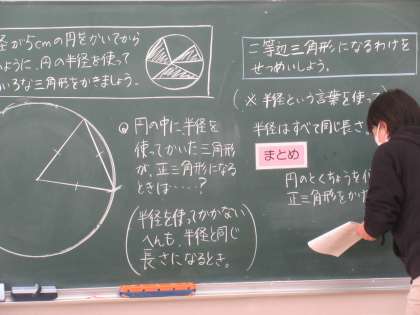 径が5cmの円をかいてから
ように、円の半径を使って
いろな三角形をかきましょう。
Q 円の中に半径を
使ってかいた三角形
が、正三角形になる
ときは……？
(半径を使ってかかない
へんも、半径と同じ
長さになるとき。)
二等辺三角形になるわけを
せつめいしよう。
(※半径という言葉を使って
半径はすべて同じ長さ
まとめ
円のとくちょうを
正三角形をか